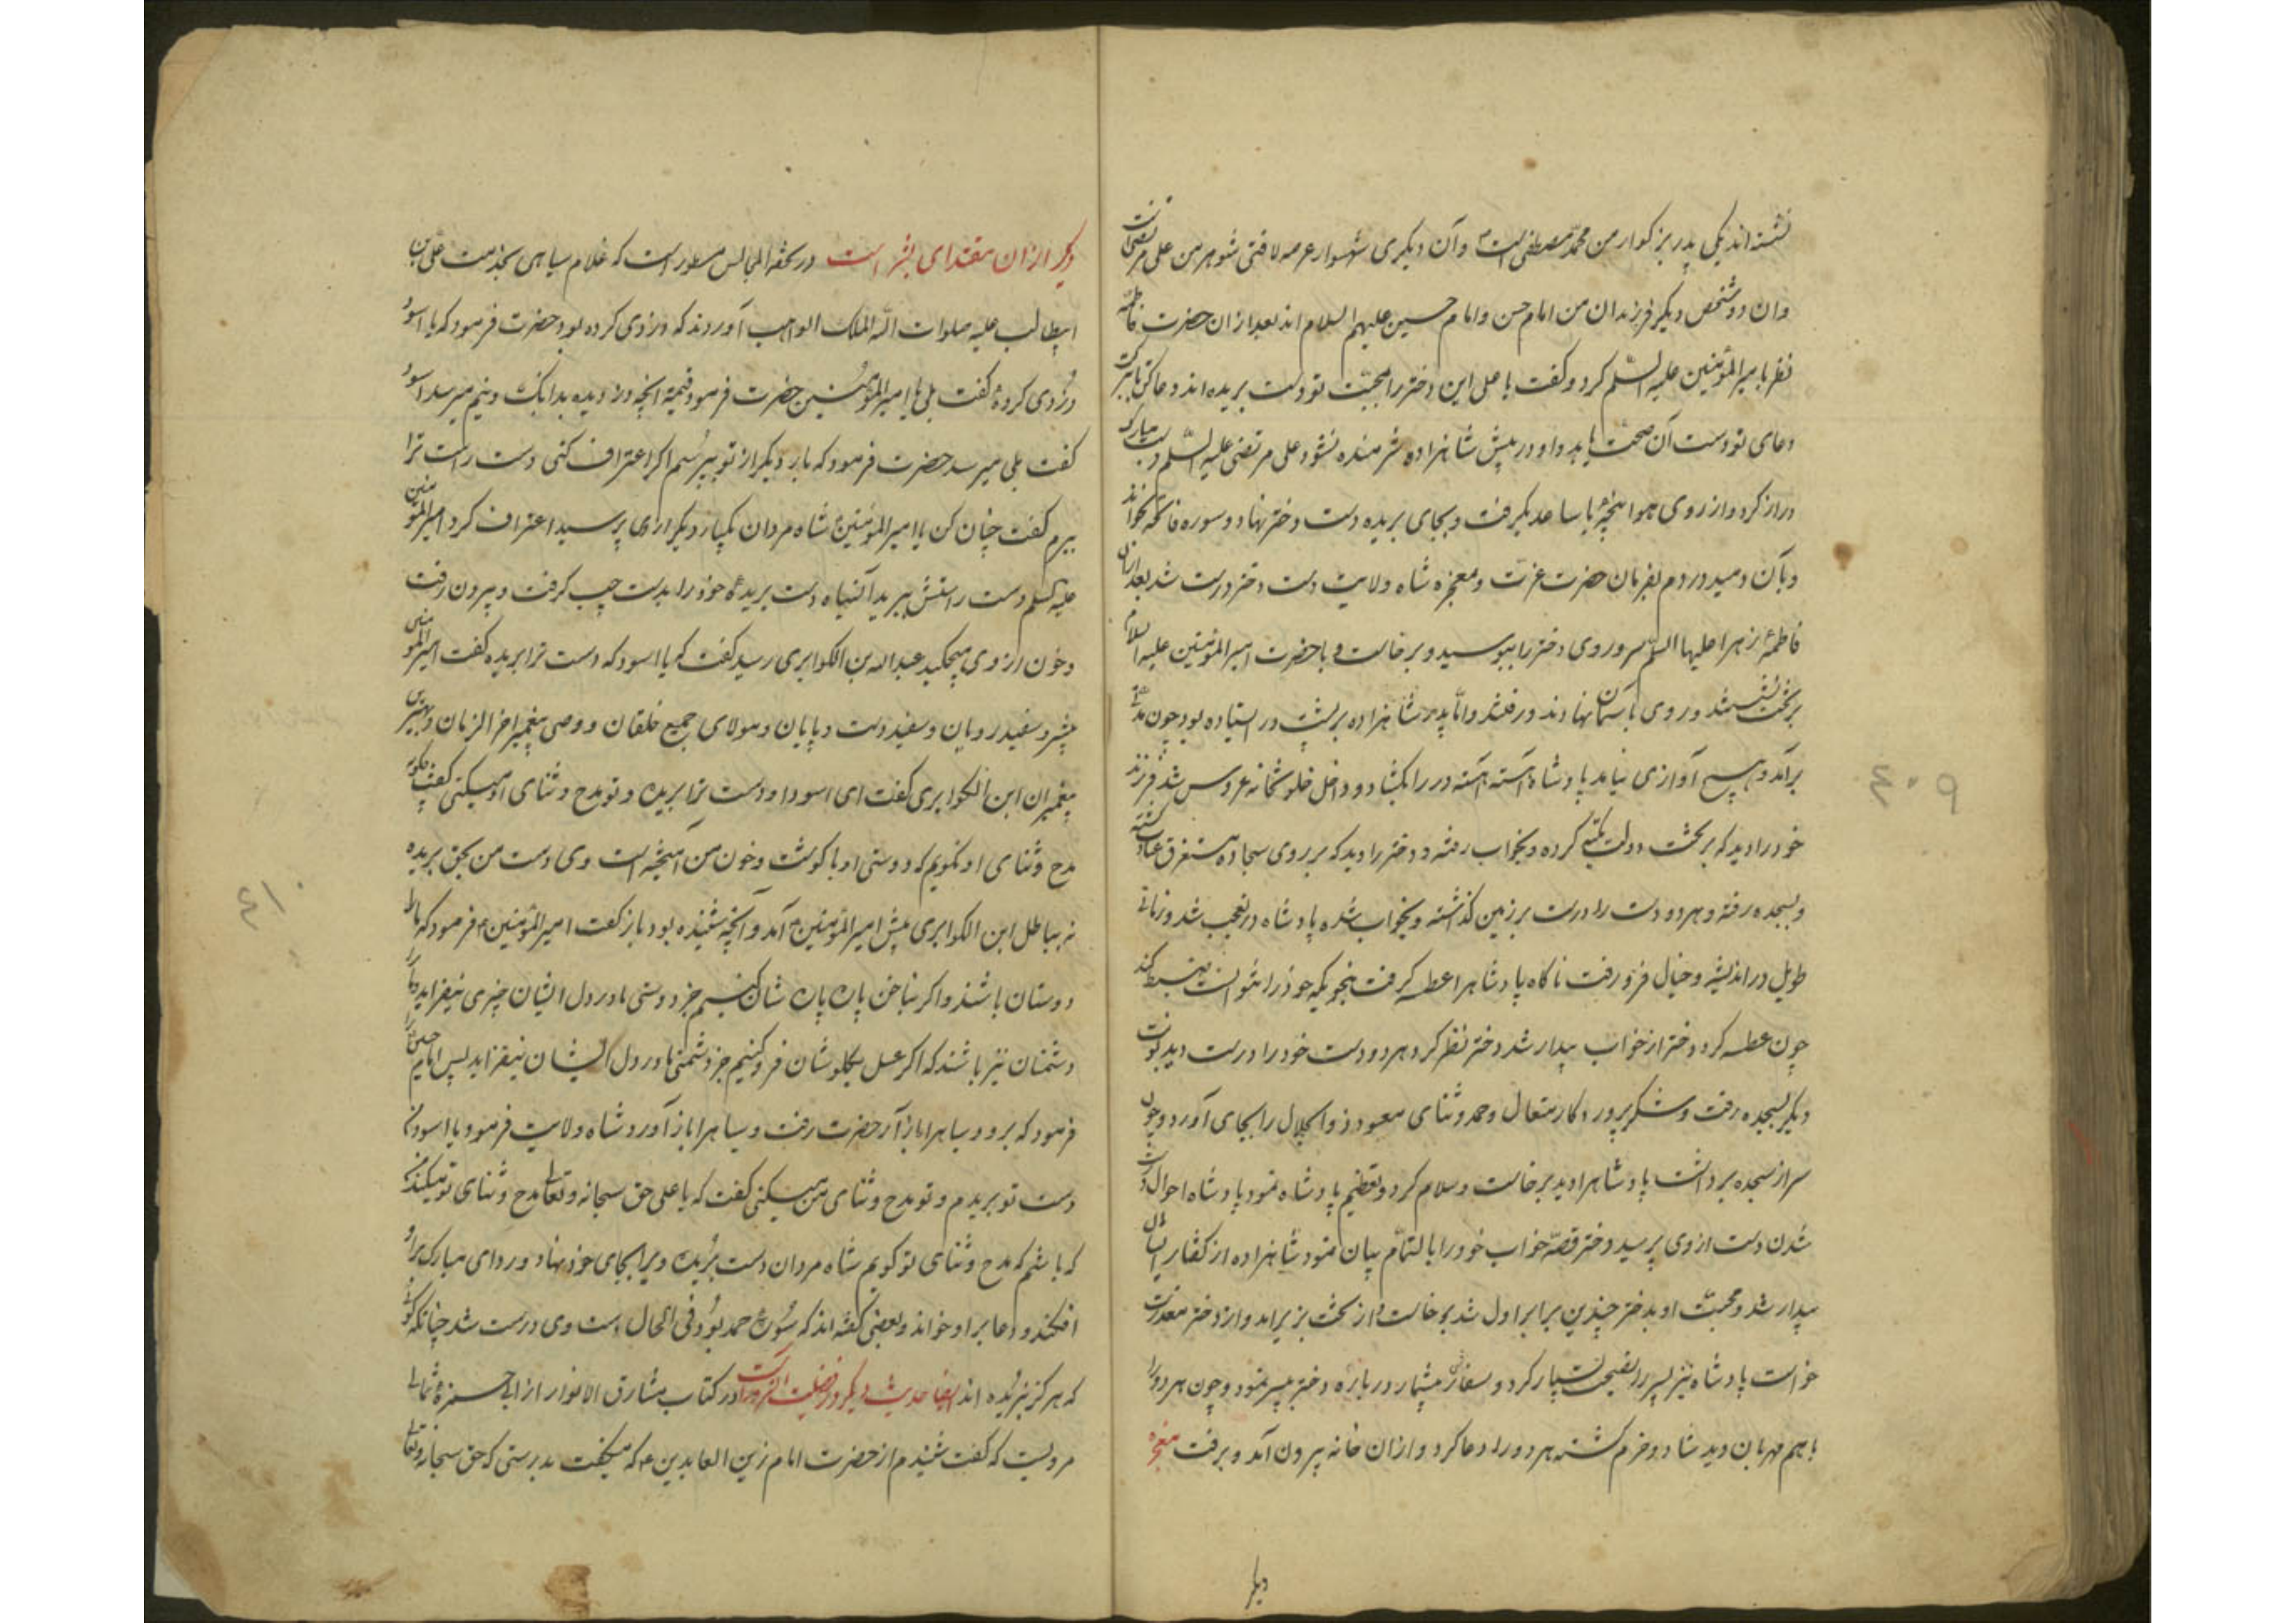 نشسته اند یکی پدر بزرگوار من محمد مصطفی است و آن دیگری شهسوار عرصه لافتی شوهر من علی مرتضی است
وان دو شخص دیگر فرزندان من امام حسن و امام حسین علیهم السلام اند بعد ازان حضرت فاطمه
نظر بامیر المؤمنین علیه السلم کرد و گفت یا علی این دختر را بمحبت تو دست بریده اند دعا کن تا ببرکت
دعای تو دست آن صحت یابد و او در پیش شاهزاده شرمنده نشود علی مرتضی علیه السلم دست مبارک
دراز کرد و از روی هوا پنجۀ با ساعد بگرفت و بجای بریده دست دختر نهاد و سوره فاتحه بخواند
و بآن دمید در دم بفرمان حضرت عزت و معجزه شاه ولایت دست دختر درست شد بعد ازان
فاطمۀ زهرا علیها السلم سر و روی دختر را ببوسید و برخاست و با حضرت امیر المؤمنین علیه السلام
بر تخت نشستند و روی بآسمان نهادند و رفتند و اما پدر شاهزاده بر پشت در ایستاده بود چون مدتی
برآمد و هیچ آوازی نیامد پادشاه آهسته آهسته در را بگشاد و داخل خلوتخانه عروس شد فرزند
خود را دید که بر تخت دولت تکیه کرده و بخواب رفته و دختر را دید که بر روی سجاده مستغرق عبادت گشته
و بسجده رفته و هر دو دست را درست بر زمین گذاشته و بخواب شده پادشاه در تعجب شد و زمانی
طویل در اندیشه و خیال فرو رفت ناگاه پادشاه را عطسه گرفت بنحویکه خود را نتوانست ضبط کند
چون عطسه کرد دختر از خواب بیدار شد دختر نظر کرد هر دو دست خود را درست دید نوبت
دیگر بسجده رفت و شکر پروردکار متعال و حمد و ثنای معبود ذو الجلال را بجای آورد و چون
سر از سجده برداشت پادشاه را دید برخاست و سلام کرد و تعظیم پادشاه نمود پادشاه احوال درست
شدن دست از وی پرسید دختر قصه خواب خود را بالتمام بیان نمود شاهزاده از گفتار ایشان
بیدار شد و محبت او بدختر چندین برابر اول شد برخاست و از تخت بزیر امد و از دختر معذرت
خواست پادشاه نیز پسر را نصیحت بسیار کرد و سفارش بیشمار در باره دختر بپسر نمود و چون هر دو را
با هم مهربان دید شاد و خرم گشته هر دو را دعا کرد و ازان خانه بیرون آمد و برفت معجزه
دیگر
۴۰۹
دیگر ازان مقتدای بشر است در تحفة المجالس مسطور است که غلام سیاهی بخدمت علی بن
ابیطالب علیه صلوات الله الملک الواهب آوردند که دزدی کرده بود حضرت فرمود که یا اسود
دزدی کردۀ گفت بلی یا امیر المؤمنین حضرت فرمود قیمه انچه دزدیده بدانک و نیم میرسد اسود
گفت بلی میرسد حضرت فرمود که بار دیگر از تو بپرسم اگر اعتراف کنی دست راست ترا
ببرم گفت چنان کن یا امیر المؤمنین شاه مردان یکبار دیگر ازوی پرسید اعتراف کرد امیر المؤمنین
علیه السلم دست راستش ببرید آنسیاه دست بریدۀ خود را بدست چپ گرفت و بیرون رفت
و خون ازوی میچکید عبد الله بن الکوابری رسید گفت که یا اسود که دست ترا بریده گفت امیر المؤمنین
و پیشرو سفید رویان و سفید دست و پایان و مولای جمیع خلقان و وصی پیغمبر اخر الزمان و بهترین
پیغمبران ابن الکوابری گفت ای اسود او دست ترا بریده و تو مدح و ثنای او میکنی گفت چگونه
مدح و ثنای او نگویم که دوستی او با گوشت و خون من آمیخته است وی دست من بحق بریده
نه بباطل ابن الکوابری پیش امیر المؤمنین آمد و آنچه شنیده بود باز گفت امیر المؤمنین فرمود که ما را
دوستان باشند و اگر بناخن پاره پاره شان کنیم جز دوستی ما در دل ایشان چیزی نیفزاید و ما را
دشمنان نیز باشند که اگر عسل بگلوشان فرو کنیم جز دشمنی ما در دل ایشان نیفزاید پس امام حسن را
فرمود که برو و سیاه را باز آر حضرت رفت و سیاه را باز آورد شاه ولایت فرمود یا اسود من
دست تو بریدم و تو مدح و ثنای من میکنی گفت که یا علی حق سبحانه و تعالی مدح و ثنای تو میکند من
که باشم که مدح و ثنای تو گویم شاه مردان دست بریده ویرا بجای خود نهاد و ردای مبارک برو
افکند و دعا بر او خواند و بعضی گفته اند که سورۀ حمد بود فی الحال دست وی درست شد چنانکه گوئی
که هرگز نبریده اند ایضا حدیث دیگر در فضیلت در کتاب مشارق الانوار از ابی حمزۀ ثمالی
مرویست که گفت شنیدم از حضرت امام زین العابدین که میگفت بدرستی که حق سبحانه و تعالی
۴۱۰